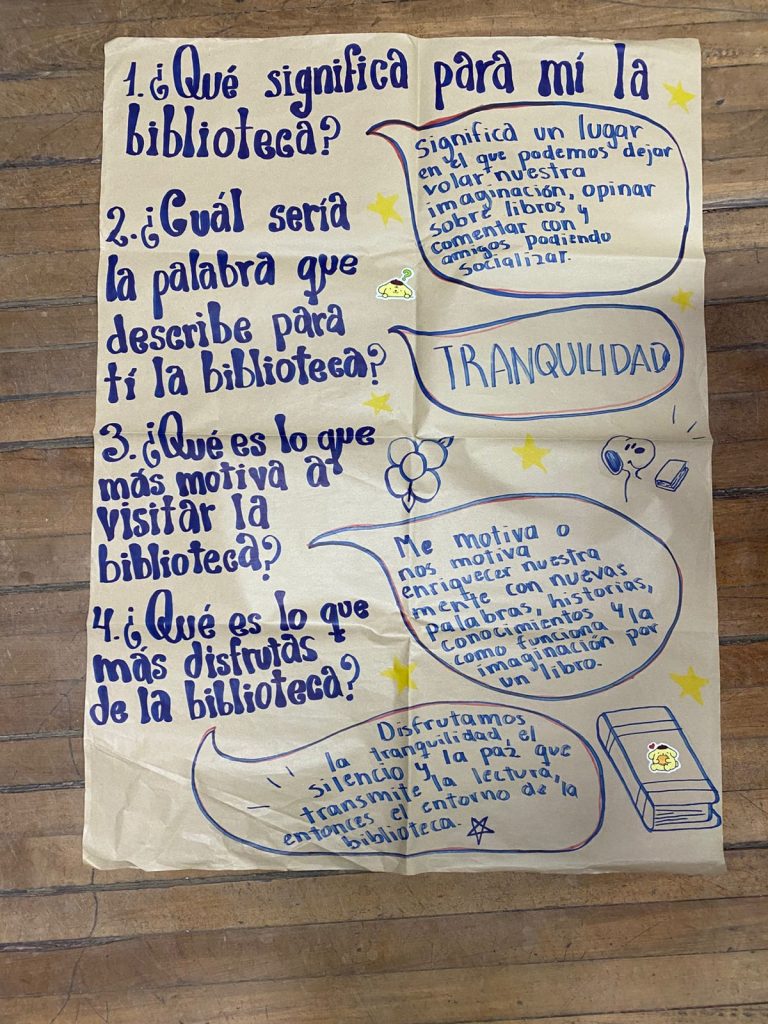 1. ¿Qué significa para mí la
biblioteca?
Significa un lugar
en el que podemos dejar
volar nuestra
imaginación, opinar
sobre libros y
comentar con
amigos podiendo
socializar.
2. ¿Cuál sería
la palabra que
describe para
tí la biblioteca?
TRANQUILIDAD
3. ¿Qué es lo que
más motiva a
visitar la
biblioteca?
Me motiva o
nos motiva
enriquecer nuestra
mente con nuevas
palabras, historias,
conocimientos y la
como funciona la
imaginación por
un libro.
4. ¿Qué es lo que
más disfrutas
de la biblioteca?
Disfrutamos
la tranquilidad, el
silencio y la paz que
transmite la lectura,
entonces el entorno de la
biblioteca.